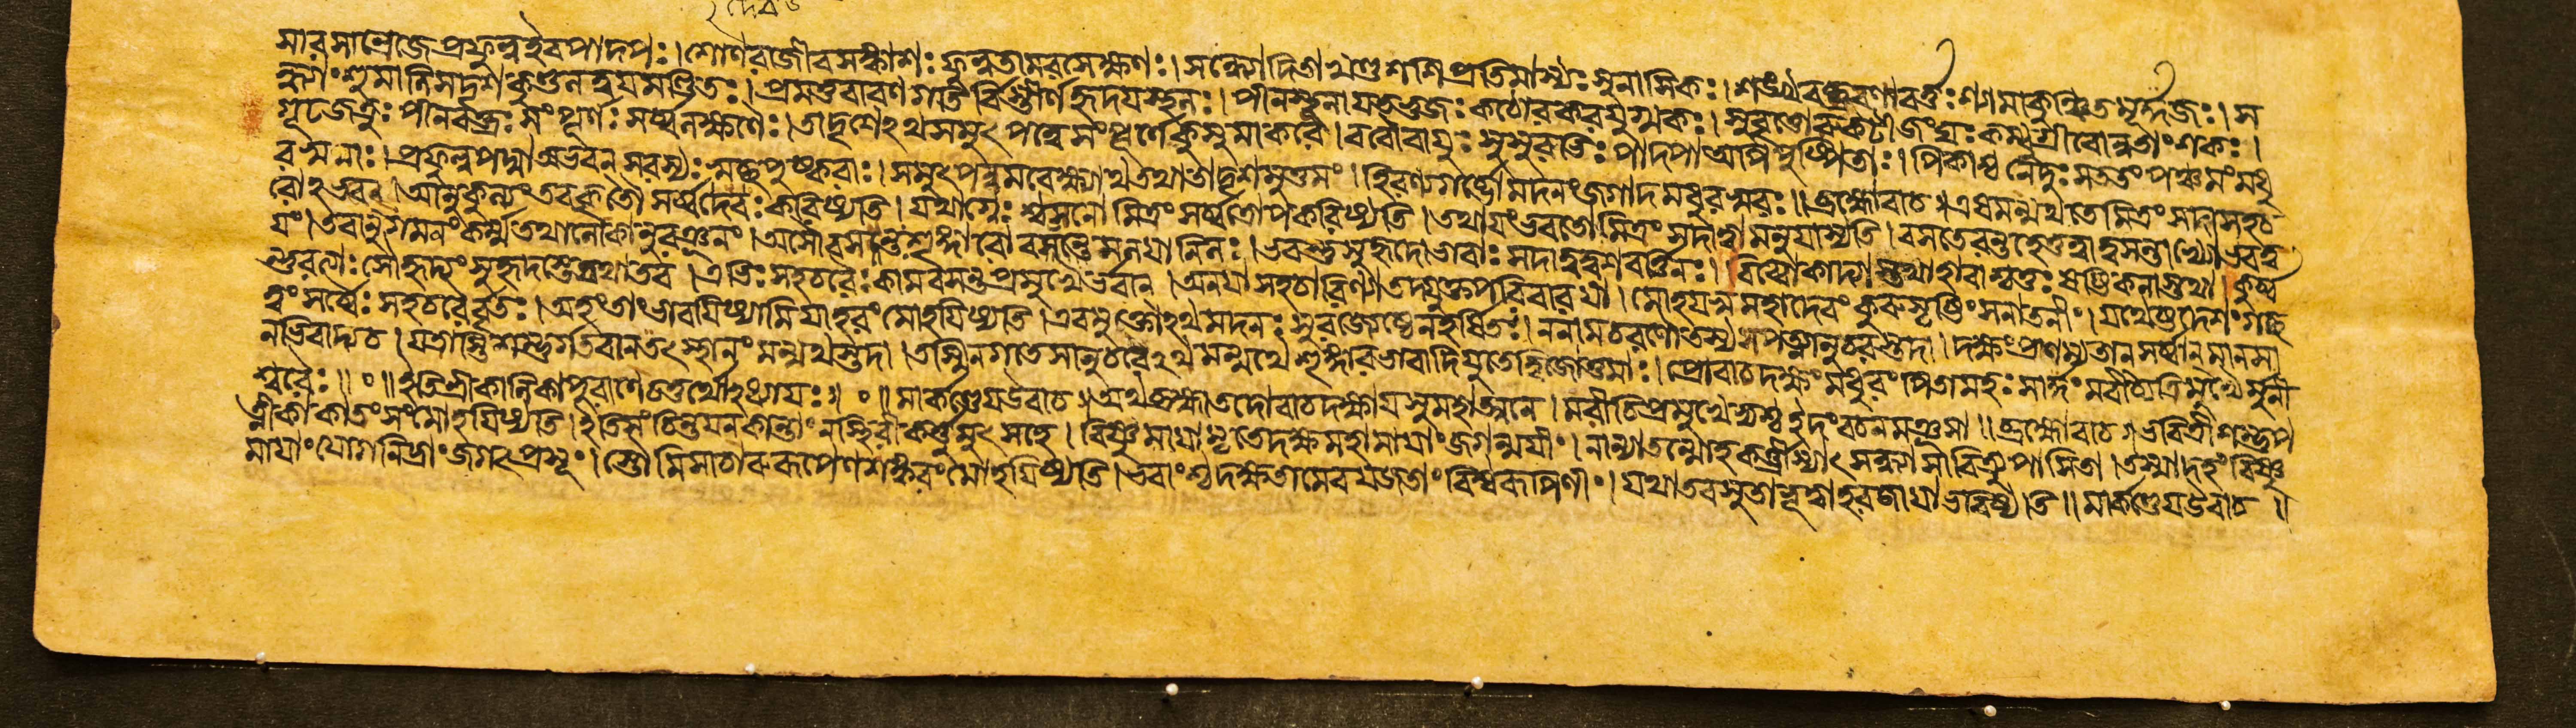 সারসাম্রেজে প্রফুল্ল ইব পাদপঃ। শোণরাজীবসঙ্কাশঃ ফুল্লতামরসেক্ষণঃ। সন্ধ্যোদিতাখণ্ডশশিপ্রতিমাস্যঃ সুনাসিকঃ। শঙ্খবচ্ছ্রবণাবর্ত্তঃ শ্যামাকুঞ্চিতমূর্দ্ধজঃ। স
ন্ধ্যাংশুমালিসদৃশকুণ্ডলদ্বয়মণ্ডিতঃ। প্রমত্তবারণগতির্বিস্তীর্ণহৃদয়স্থলঃ। পীনস্থূলায়তভুজঃ কঠোরকরযুগ্মকঃ। সুবৃত্তোরুকটীজংঘঃ কম্বুগ্রীবোন্নতাংশকঃ।
গূঢ়জত্রুঃ পীনবক্ত্রঃ সংপূর্ণঃ সর্ব্বলক্ষণৈঃ। তাদৃশেঽথ সমুৎপন্নে সংপূর্ণে কুসুমাকরে। ববৌ বায়ুঃ সুসুরভিঃ পাদপা অপি পুষ্পিতাঃ। পিকাশ্চ নেদুঃ শতশঃ পঞ্চমং মধু
রস্বনাঃ। প্রফুল্লপদ্মা অভবন্ সরস্যঃ স্বচ্ছপুষ্করাঃ। সমুৎপন্নমবেক্ষ্যাথ তথা তাদৃশমুত্তমং। হিরণ্যগর্ভো মদনং জগাদ মধুরস্বরঃ॥ ব্রহ্মোবাচ॥ এষ মন্মথ তে মিত্রং সদা সহচ
রোঽভবৎ। আনুকূল্যং তব কৃতে সর্ব্বদৈবং করিষ্যতি। যথাগ্নেঃ শ্বসনো মিত্রং সর্ব্বত্রোপকরিষ্যতি। তথায়ং ভবতো মিত্রং সদা ত্বামনুযাস্যতি। বসতেরন্তহেতুত্বাদ্বসন্তাখ্যো ভবত্ব
য়ং। তবানুগমনং কর্ম্ম তথা লোকানুরঞ্জনং। অসৌ বসন্তশৃঙ্গারো বসন্তে মলয়ানিলঃ। ভবন্তু সুহৃদো ভাবাঃ সদা ত্বদ্বশবর্ত্তিনঃ। বিব্বোকাদ্যাস্তথা হাবাশ্চতুঃষষ্ঠিকলাস্তথা। কুর্ব্ব
ন্তু রত্যাঃ সৌহৃদ্যং সুহৃদস্তে যথা তব। এভিঃ সহচরৈঃ কাম বসন্তপ্রমুখৈর্ভবান্। অনয়া সহচারিণ্যা তদ্যুক্তপরিবারয়া। মোহয়স্ব মহাদেবং কুরু সৃষ্টিং সনাতনীং। যথেষ্টদেশং গচ্ছ
ত্বং সর্ব্বৈঃ সহচরৈর্বৃতঃ। অহং তাং ভাবয়িষ্যামি যা হরং মোহয়িষ্যতি। এবমুক্তোঽথ মদনঃ সুরজ্যেষ্ঠেন হর্ষিতঃ। ননাম চরণৌ তস্য সপত্নীকানুচরস্তদা। দক্ষং প্রণম্য তান্ সর্ব্বান্ মানসা
নভিবাদ্য চ। যত্রাস্তি শম্ভুর্গতবান্ তৎ স্থানং মন্মথস্তদা। তস্মিন্ গতে সানুচরেঽথ মন্মথে শৃঙ্গারভাবাদিযুতে দ্বিজোত্তমাঃ। প্রোবাচ দক্ষং মধুরং পিতামহঃ সার্দ্ধং মরীচ্যত্রিমুখৈর্মুনী
শ্বরৈঃ॥ ০॥ ইতি শ্রীকালিকাপুরাণে চতুর্থোঽধ্যায়ঃ॥ ০॥ মার্কণ্ডেয় উবাচ॥ অথ ব্রহ্মা তদোবাচ দক্ষায় সুমহাত্মনে। মরীচিপ্রমুখেভ্যশ্চ ইদং বচনমঞ্জসা॥ ব্রহ্মোবাচ॥ ভবিত্রী শম্ভুপ
ত্নী কা কা তং সংমোহয়িষ্যতি। ইতি সংচিন্তয়ন্ কান্তাং ন স্থিরীকর্ত্তুমুৎসহে। বিষ্ণুমায়ামৃতে দক্ষ মহামায়াং জগন্ময়ীং। নান্যা তন্মোহকর্ত্রী স্যাৎ সন্ধ্যাসাবিত্র্যুপাসিতা। তস্মাদহং বিষ্ণু
মায়াং যোগনিদ্রাং জগৎপ্রসূং। স্তৌমি সা চারুরূপেণ শঙ্করং মোহয়িষ্যতি। ভবাংশ্চ দক্ষ তামেব যজতাং বিশ্বরূপিণীং। যথা তব সুতা ভূত্বা হরজায়া ভবিষ্যতি॥ মার্কণ্ডেয় উবাচ॥